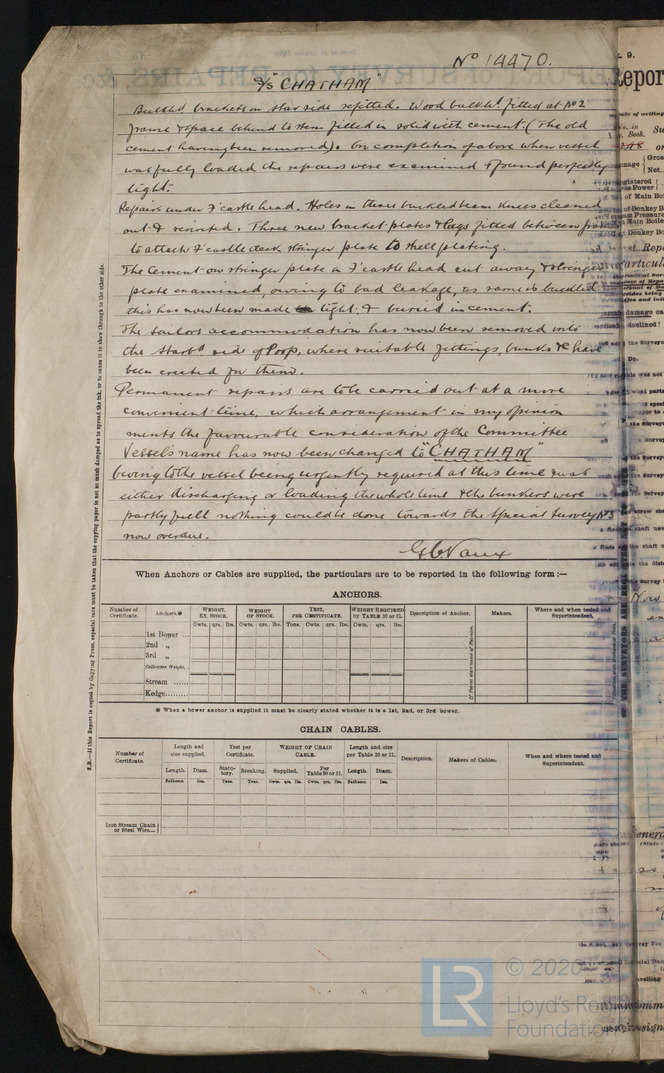 No 14470.
S/S "CHATHAM"
Bulkhd brackets on star side refitted. Wood bulkhd. fitted at No 2
frame & space behind to stem filled in solid with cement. (The old
cement having been removed). On completion of above when vessel
was fully loaded the repairs were examined & found perfectly
tight.
Repairs under F'castle head. Holes in three buckled beam knees cleaned
out & reriveted. Three new bracket plates & lugs fitted between
to attach F'castle deck stringer plate to shell plating.
The cement on stringer plate a F'castle head cut away & stringer
plate examined, owing to bad leakage, as same is buckled
this has now been made tight. & buried in cement.
The sailors accommodation has now been removed into
the Starbd side of Poop, where suitable fittings, bunks &c have
been erected for them.
Permanent repairs are to be carried out at a more
convenient time, which arrangement in my opinion
merits the favourable consideration of the Committee
Vessel's name has now been changed to "CHATHAM"
Owing to the vessel being urgently required at this time & was
either discharging or loading the whole time & the bunkers were
partly full nothing could be done towards the Special Survey No 3
now overdue.
When Anchors or Cables are supplied, the particulars are to be reported in the following form :—
ANCHORS.
Number of Certificate. Anchors.* WEIGHT. EX. STOCK. WEIGHT OF STOCK. TEST, PER CERTIFICATE. WEIGHT REQUIRED by TABLE 30 or 31. Description of Anchor. Makers. Where and when tested and Superintendent.
Cwts. qrs. lbs. Cwts. qrs. lbs. Tons. Cwts. qrs. lbs. Cwts. qrs. lbs.
1st Bower ...
2nd „
3rd „
Collective Weight.
Stream ......
Kedge.......
* When a bower anchor is supplied it must be clearly stated whether it is a 1st, 2nd, or 3rd bower.
CHAIN CABLES.
Number of Certificate. Length and size supplied. Test per Certificate. WEIGHT OF CHAIN CABLE. Length and size per Table 30 or 31. Description. Makers of Cables. When and where tested and Superintendent.
Length. Diam. Statutory. Breaking. Supplied. Per Table 30 or 31. Length. Diam.
Fathoms. Ins. Tons. Tons. Cwts. qrs. lbs. Cwts. qrs. lbs. Fathoms. Ins.
Iron Stream Chain or Steel Wire...
N.B.—If this Report is copied by Copying Press, especial care must be taken that the copying paper is not so much damped as to spread the ink, or to cause it to show through to the other side.
LR
© 2020
Lloyd's Re
Foundation